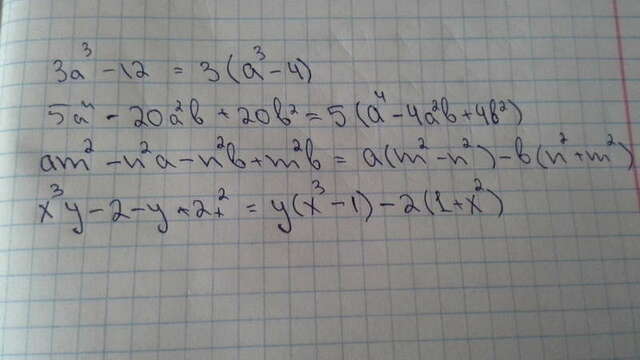 3a³ - 12 = 3(a³ - 4)
5a⁴ - 20a²b + 20b² = 5(a⁴ - 4a²b + 4b²)
am² - n²a - n²b + m²b = a(m² - n²) - b(n² + m²)
x³y - 2 - y + 2x² = y(x³ - 1) - 2(1 + x²)